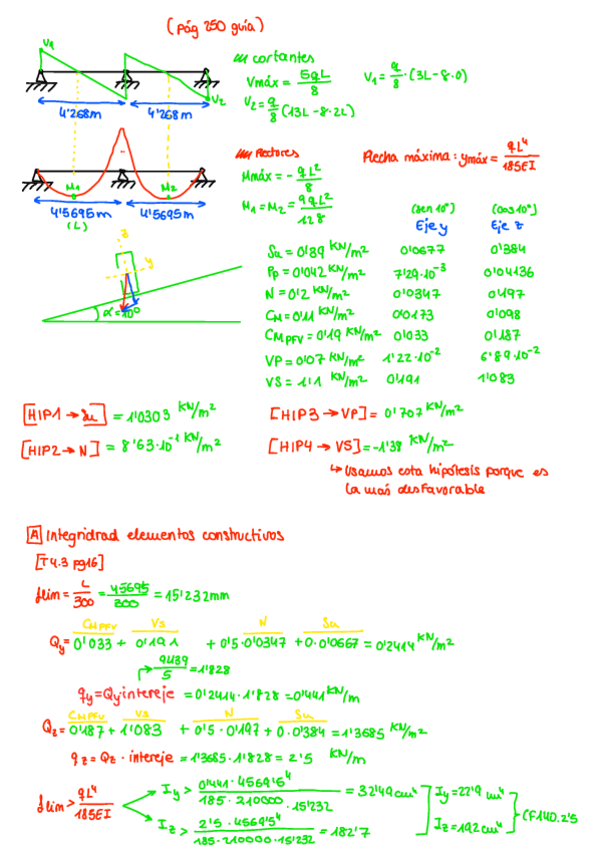 (pág 250 guía)
V1
V2
4'268m 4'268m
/// cortantes
Vmáx = 5qL/8 V1 = q/8 · (3L - 8·0)
V2 = q/8 (13L - 8·2L)
M1 M2
4'5695m 4'5695m
(L)
/// Flectores
Mmáx = - qL²/8
M1 = M2 = 9qL²/128
Flecha máxima: ymáx = qL⁴/185EI
z
y
α = 10º
(sen 10º) (cos 10º)
Eje y Eje z
Su = 0'39 KN/m² 0'0677 0'384
Pp = 0'042 KN/m² 7'29·10⁻³ 0'04136
N = 0'2 KN/m² 0'0347 0'197
CM = 0'11 KN/m² 0'0173 0'098
CMPFV = 0'19 KN/m² 0'033 0'187
VP = 0'07 KN/m² 1'22·10⁻² 6'89·10⁻²
VS = 1'1 KN/m² 0'191 1'083
[HIP1 → Su] = 1'0303 KN/m² [HIP3 → VP] = 0'707 KN/m²
[HIP2 → N] = 8'63·10⁻¹ KN/m² [HIP4 → VS] = -1'38 KN/m²
↳ Usamos esta hipótesis porque es
la más desfavorable
A Integridrad elementos constructivos
[T4.3 pg16]
flim = L/300 = 45695/300 = 15'232mm
CMPFV VS N Su
Qy = 0'033 + 0'191 + 0'5·0'0347 + 0·0'0667 = 0'2414 KN/m²
9'139/5 = 1'828
qy = Qy·intereje = 0'2414·1'828 = 0'441 KN/m
CMPFV VS N Su
Qz = 0'187 + 1'083 + 0'5·0'197 + 0·0'384 = 1'3685 KN/m²
qz = Qz · intereje = 1'3685·1'828 = 2'5 KN/m
flim > qL⁴/185EI
Iy > 0'441·4569'5⁴/185·210000·15'232 = 32'49 cm⁴ Iy = 22'9 cm⁴
Iz > 2'5·4569'5⁴/185·210000·15'232 = 182'7 Iz = 192 cm⁴
CF140.2'5